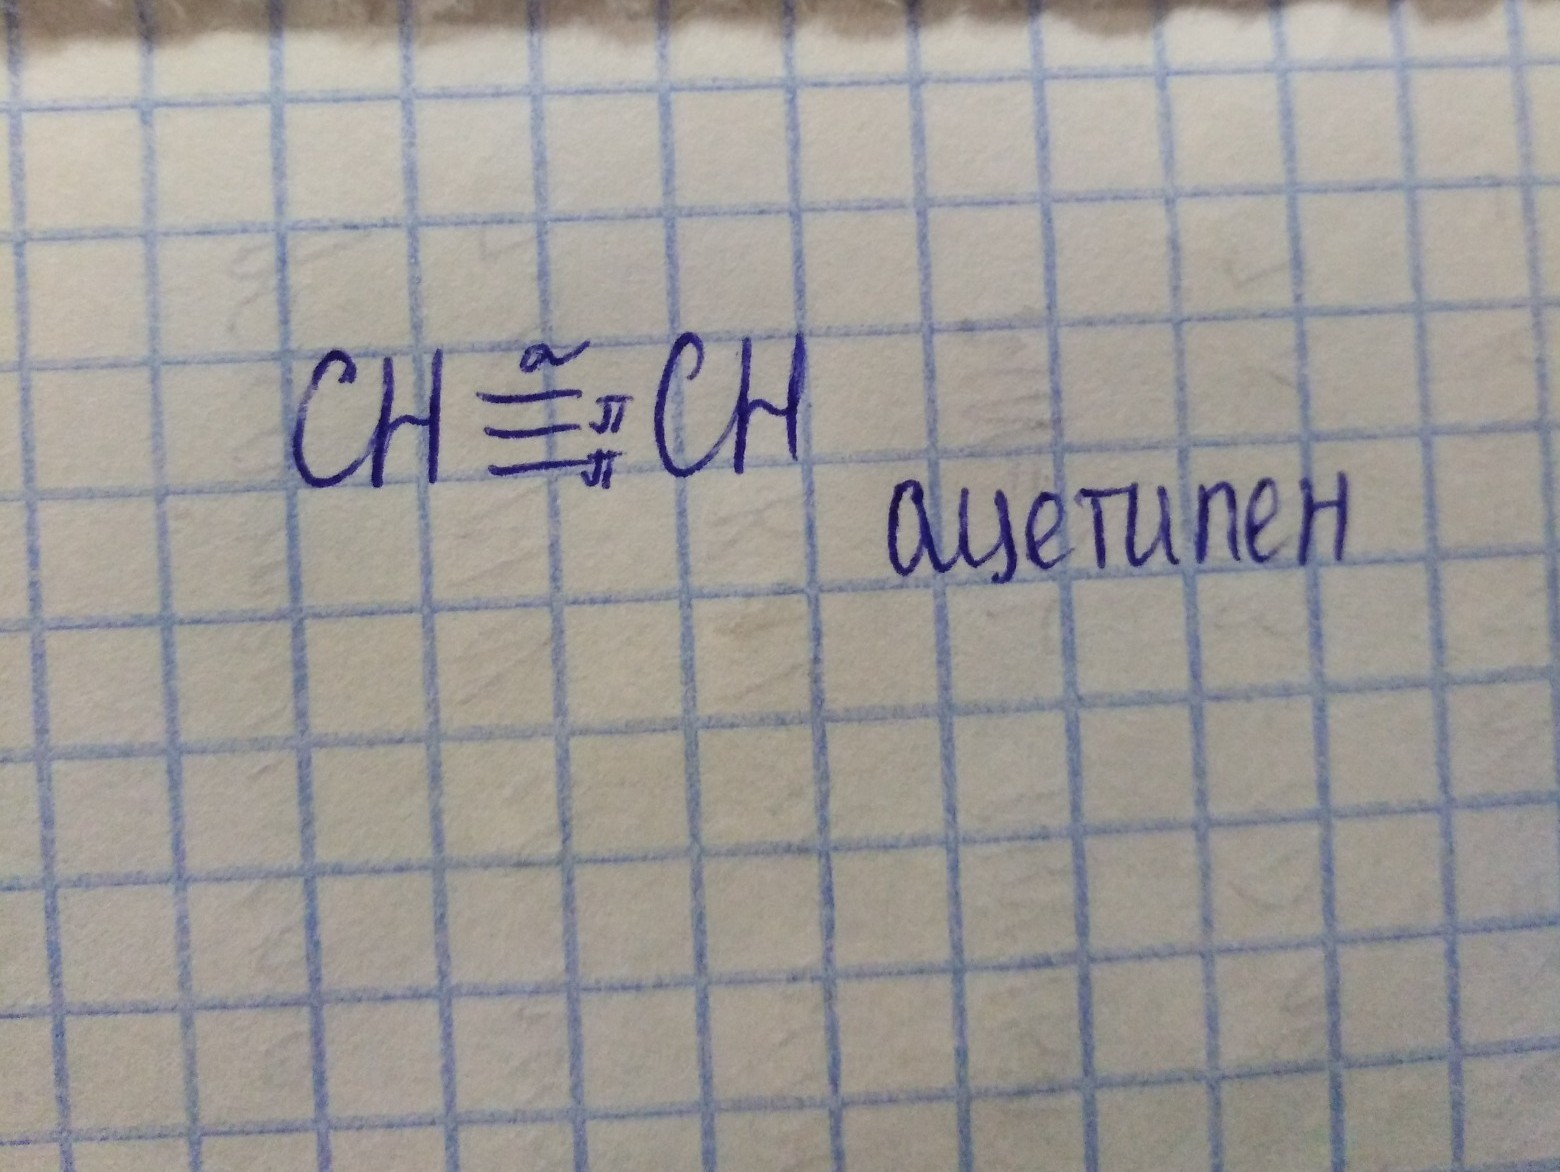 CH ≡ CH
σ
π
π
ацетилен